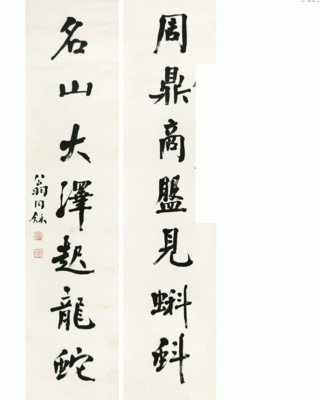 周鼎商盤見蝌蚪
名山大澤起龍蛇
翁同龢